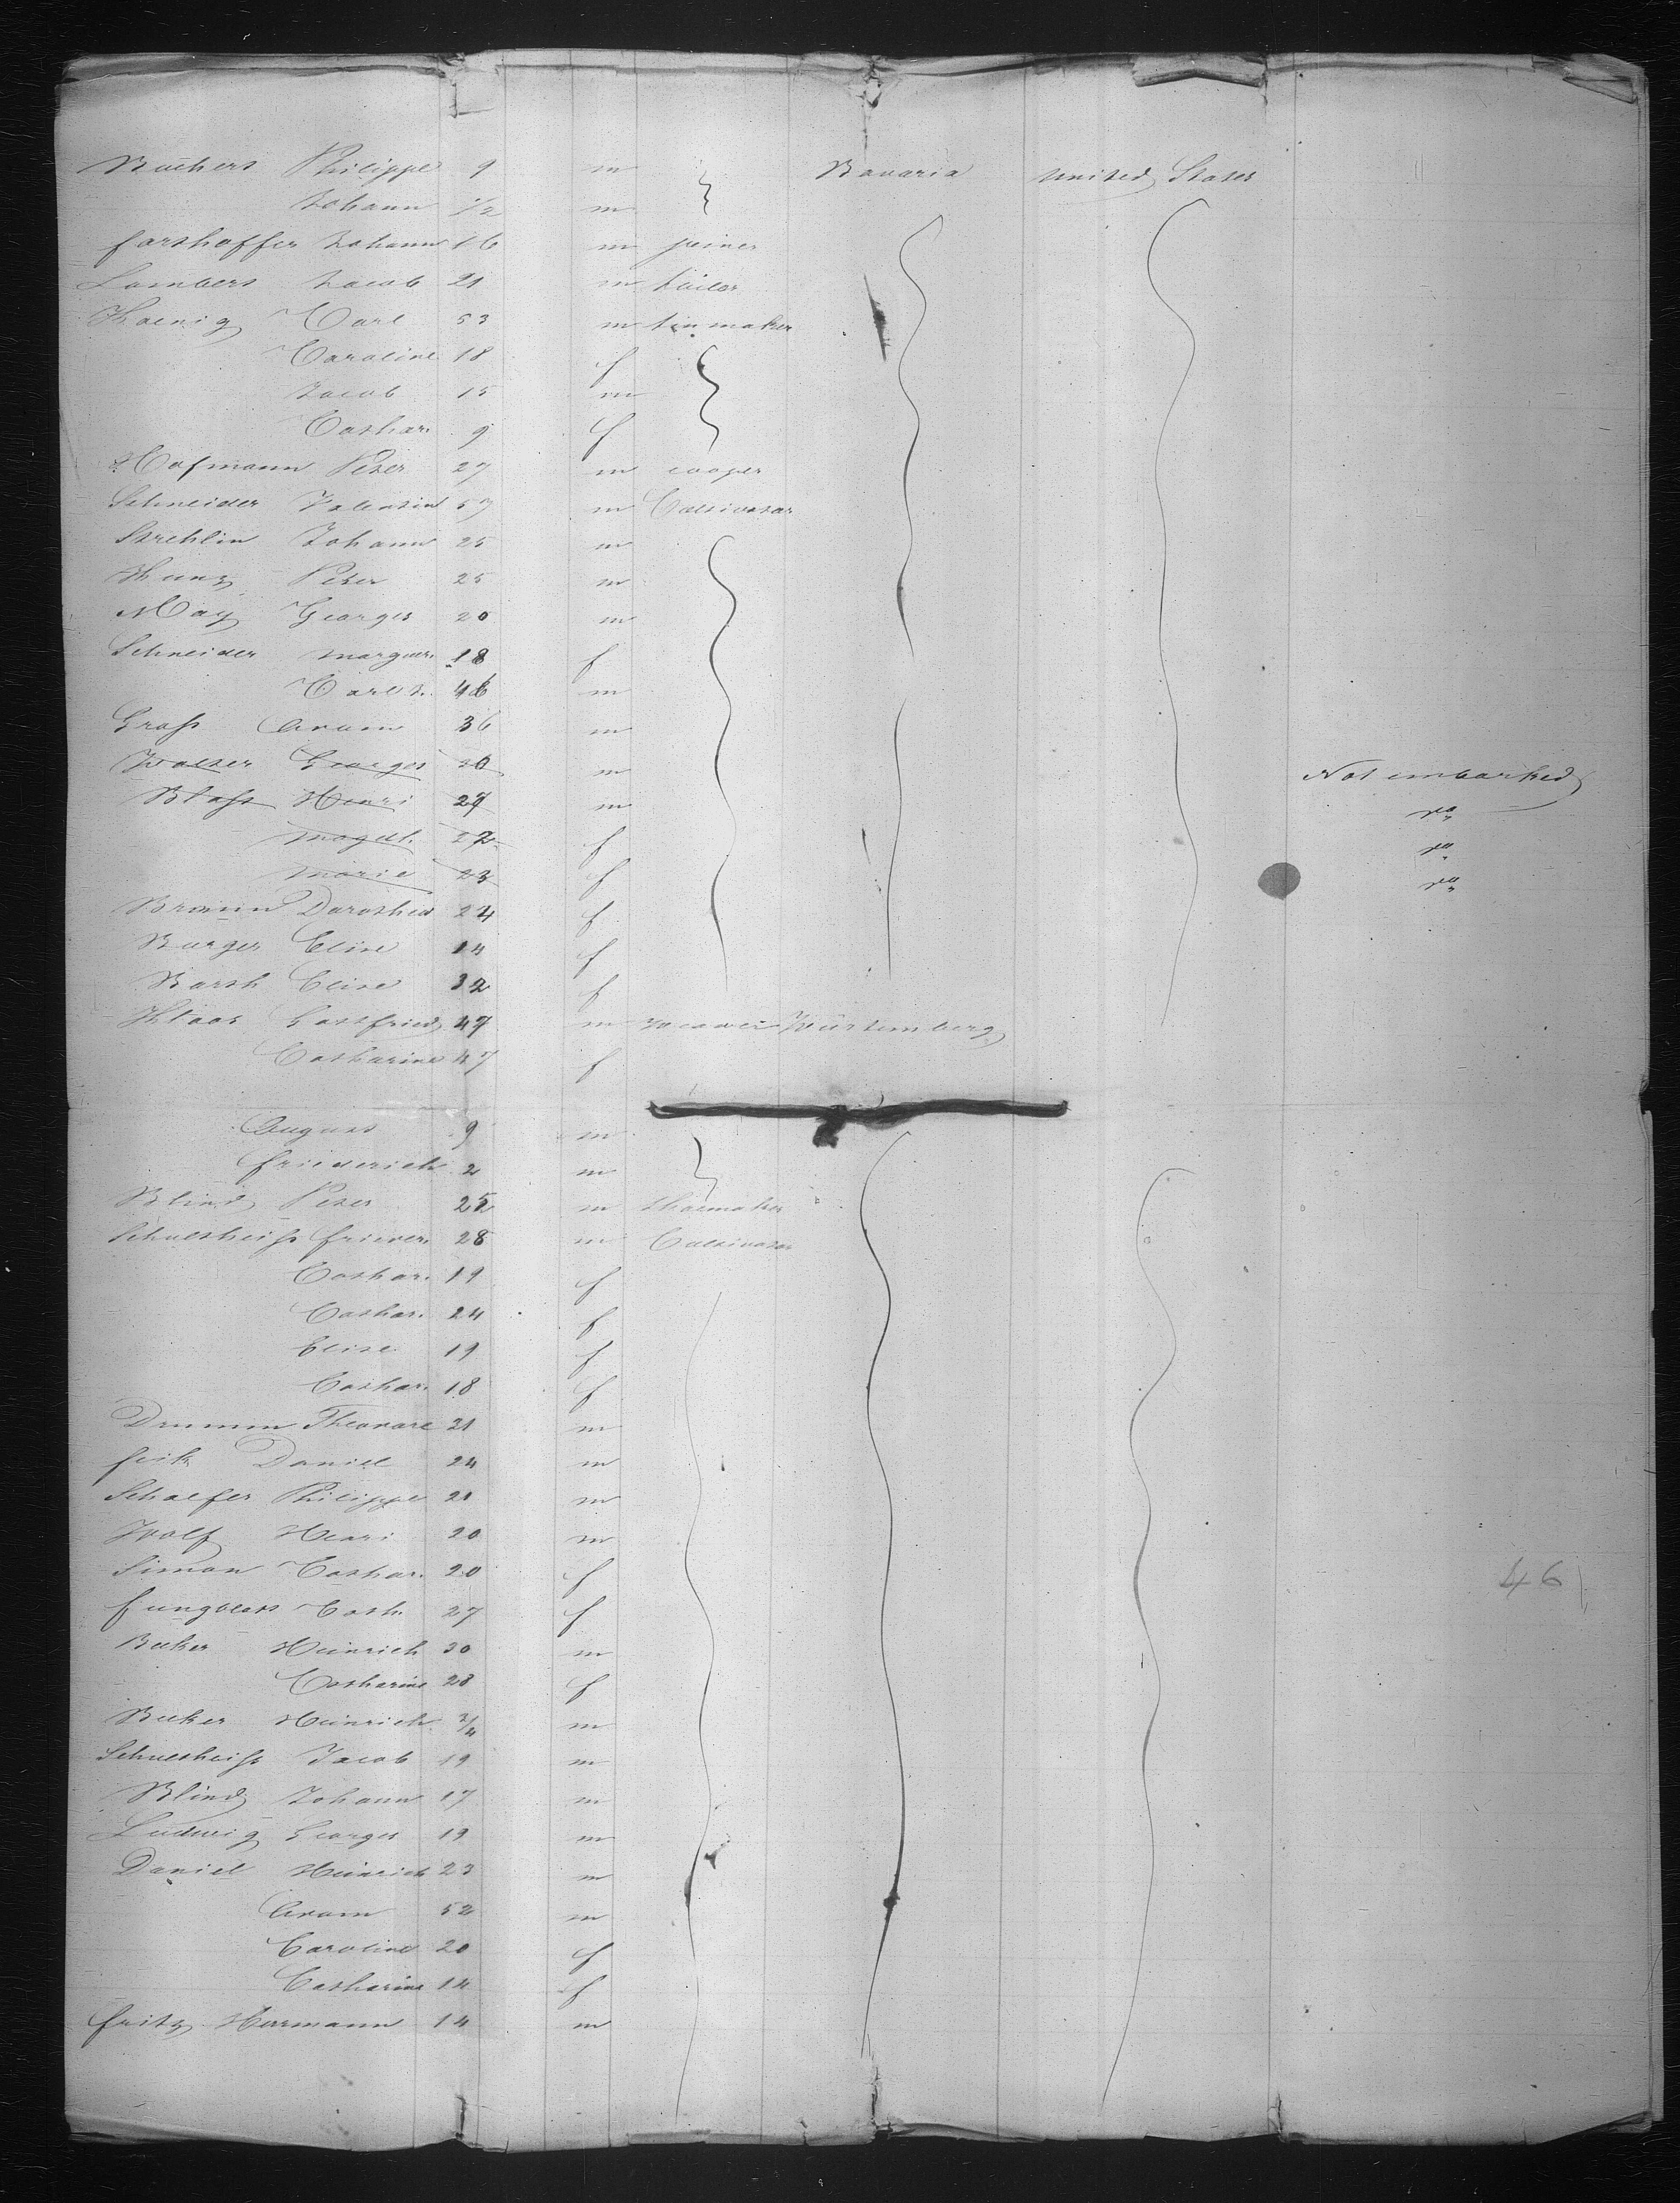 Buchert Philippe 9 m Bavaria United States
Johann 1/2 m
Forthoffer Johann 16 m joiner
Lambert Jacob 21 m tailor
Koenig Carl 53 m tin maker
Caroline 18 f
Jacob 15 m
Cathar. 9 f
Hofmann Peter 27 m cooper
Schneider Valentin 57 m Cultivator
Strehlin Johann 25 m
Kunz Peter 25 m
May Georges 20 m
Schneider Marguer. 18 f
Carl 46 m
Grass Adam 36 m
Walter Georges 20 m Not embarked
Blass Henri 27 m do
Magdl. 22 f do
Marie 23 f do
Braun Dorothea 24 f
Burger Elise 14 f
Barth Elise 32 f
Klaas Gottfried 47 m weaver Würtemberg
Catharine 47 f
August 9 m
Friederich 2 m
Blind Peter 25 m Shoemaker
Schultheiss Frieder. 28 m Cultivator
Cathar. 19 f
Cathar. 24 f
Elise 19 f
Cathar. 18 f
Drumm Theodore 21 m
Feik Daniel 24 m
Schaefer Philippe 21 m
Wolf Henri 20 m
Simon Cathar. 20 f
Cath. 27 f
Becker Heinrich 30 m
Catharine 28 f
Becker Heinrich 3/4 m
Schultheiss Jacob 19 m
Blind Johann 17 m
Ludwig Georges 19 m
Daniel Heinrich 23 m
Adam 52 m
Caroline 20 f
Catharine 14 f
Fritz Herrmann 14 m
46